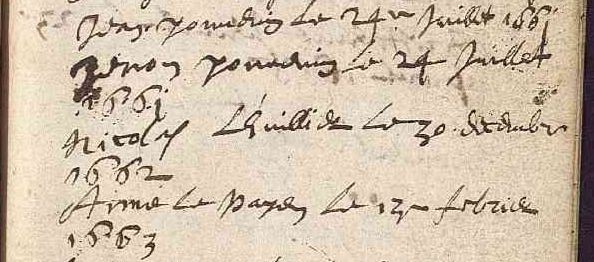 Jean pomedin le 24e Juillet 1661
pomedin le 24 Juillet
1661
Nicolas Lhuillier le 30 decembre
1662
Anne le Payen le febrier
1663